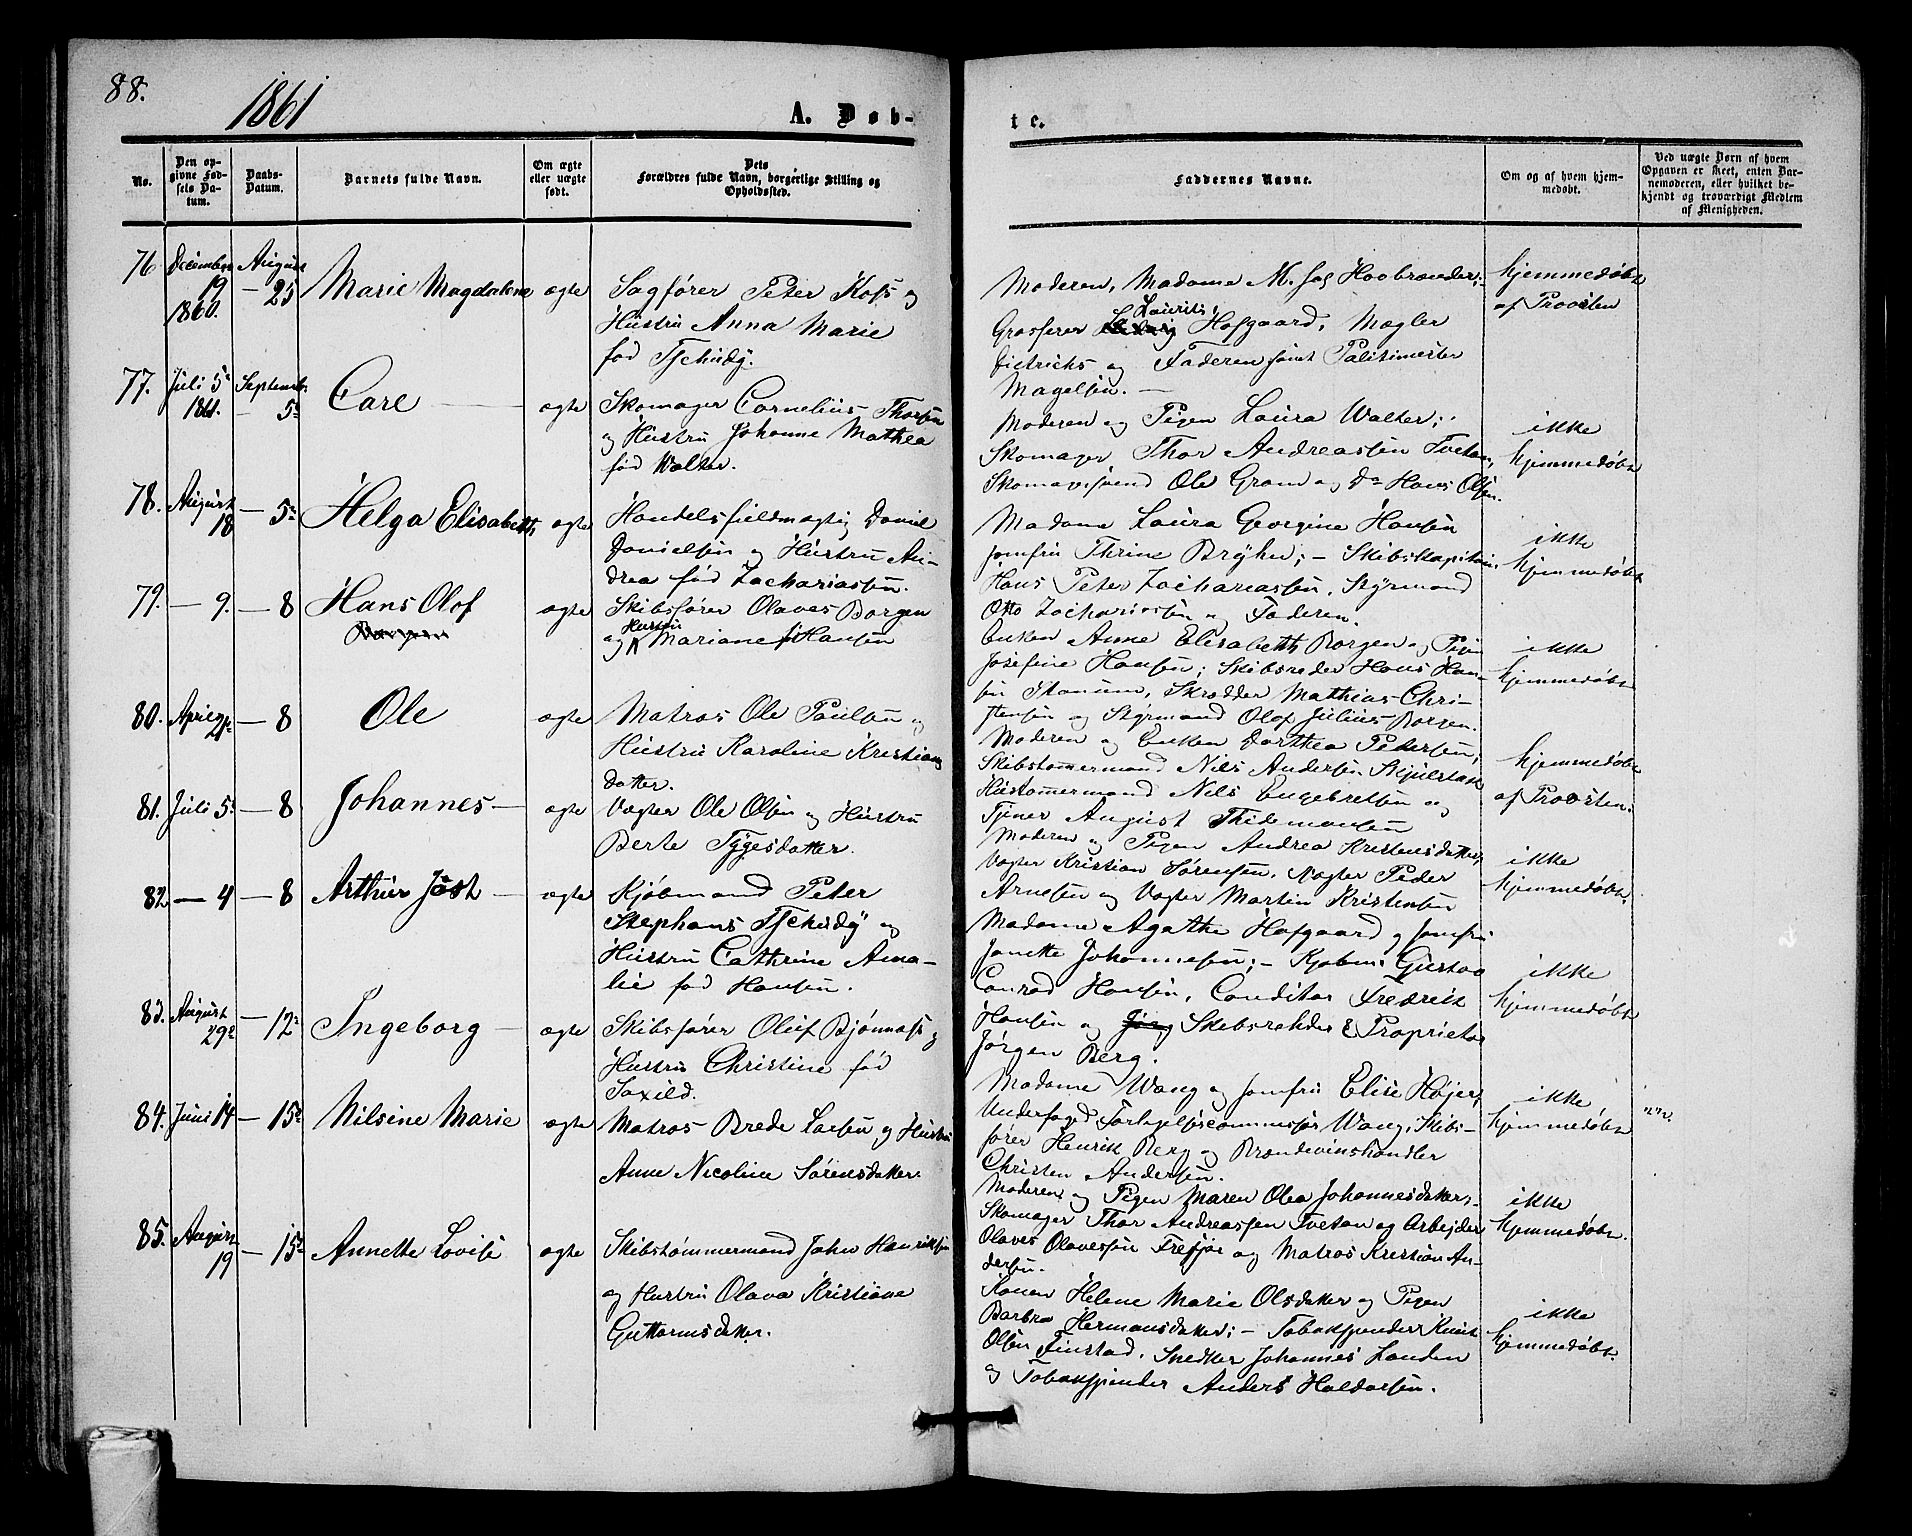 88.
1861
A. Døb-
te.
No.
Den op-
givne Fød-
sels Da-
tum.
Daabs-
Datum.
Barnets fulde Navn.
Om ægte
eller uægte
født.
Dets
Forældres fulde Navn, borgerlige Stilling og
Opholdssted.
Faddernes Navne.
Om og af hvem hjem-
medøbt.
Ved uægte Børn af hvem
Opgaven er skeet, enten Bar-
nemoderen, eller hvilket be-
kjendt og troværdigt Medlem
af Menigheden.
76 December 19 1860. August - 25 Marie Magdalena ægte
Sagfører Peter Koss og
Hustru Anna Marie
fød Tschudy.
Moderen, Madame M. Hoobrander;
Grosserer Laurits Hofgaard, Mægler
Dietrichs og Faderen samt Politimester
Magelsen. —
hjemmedøbt
af Provsten
77. Juli 5 1861. September - 5 Carl ægte
Skomager Cornelius Thorsen
og Hustru Johanne Mathea
fød Walter.
Moderen og Pigen Laura Walter;
Skomager Thor Andreassen Tvetan,
Skomagersvend Ole Gran og Do Hans Olsen.
ikke
hjemmedøbt
78. August 18 — 5 Helga Elisabeth ægte
Handelsfuldmægtig Daniel
Danielsen og Hustru An-
drea fød Zachariassen.
Madame Laura Georgine Hansen
Jomfru Thrine Bryhn; - Skibskapitain
Hans Peter Zachariassen, Styrmand
Otto Zachariassen og Faderen.
ikke
hjemmedøbt
79. — 9. — 8 Hans Olof ægte
Skibsfører Olaves Borgen
og Hustru Mariane f Hansen
Enken Anne Elisabeth Borgen og Pigen
Josefine Hansen; Skibsreder Hans Han-
sen Stanum, Skrædder Mathias Chri-
stensen og Styrmand Olof Julius Borgen.
ikke
hjemmedøbt
80. April — 8 Ole ægte
Matros Ole Paulsen og
Hustru Karoline Kristians
datter.
Moderen og Enken Dorthea Pedersen;
Skibstømmermand Nils Andersen
Hustømmermand Nils Engebretsen og
Tjener August Thidemansen
hjemmedøbt
af Provsten.
81. Juli 5 — 8 Johannes — ægte
Vægter Ole Olsen og Hustru
Berte Tygesdatter.
Moderen og Pigen Andrea Kristensdatter,
Vægter Kristian Sørensen, Vægter Peder
Arnesen og Vægter Martin Kristensen
ikke
hjemmedøbt.
82 — 4 — 8 Arthur Jost — ægte
Kjøbmand Peter
Stephans Tschudy og
Hustru Cathrine Ama-
lie fød Hansen.
Madame Agathe Hofgaard og Jomfru
Janette Johannesen; - Kjøbm: Gustav
Conrad Hansen, Conditor Fredrik
Hansen og Skibsrehder & Proprietær
Jørgen Berg.
ikke
hjemmedøbt
83. August 29 — 12 Ingeborg — ægte
Skibsfører Oluf Bjønness og
Hustru Christine fød
Saxild.
Madame Wang og Jomfru Elise Højer,
Underfoged Forligelsescommissær Wang, Skibs-
fører Henrik Berg og Brændevinshandler
Christen Andersen.
ikke
hjemmedøbt
84. Juni 14 — 15 Nilsine Marie ægte
Matros Brede Larsen og Hustru
Anne Nicoline Sørensdatter.
Moderen og Pigen Maren Olea Johannesdatter,
Skomager Thor Andreassen Tvetan og Arbejder
Olaves Olavessen og Matros Kristian An-
dersen.
ikke
hjemmedøbt.
85. August 19 — 15 Annette Lovise ægte
Skibstømmermand John Henriksen
og Hustru Olava Kristiane
Guttormsdatter.
Konen Helene Marie Olsdatter og Pigen
Barbra Hermansdatter; - Tobakspinder Knut
Olsen Finstad, Snedker Johannes Landen
og Tobakspinder Anders Haldorsen.
ikke
hjemmedøbt.